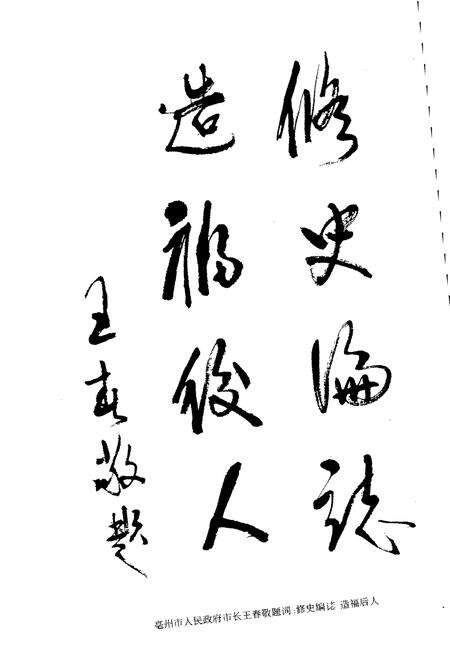 修史編誌
造福後人
王春敬题
亳州市人民政府市长王春敬题词:修史编志 造福后人